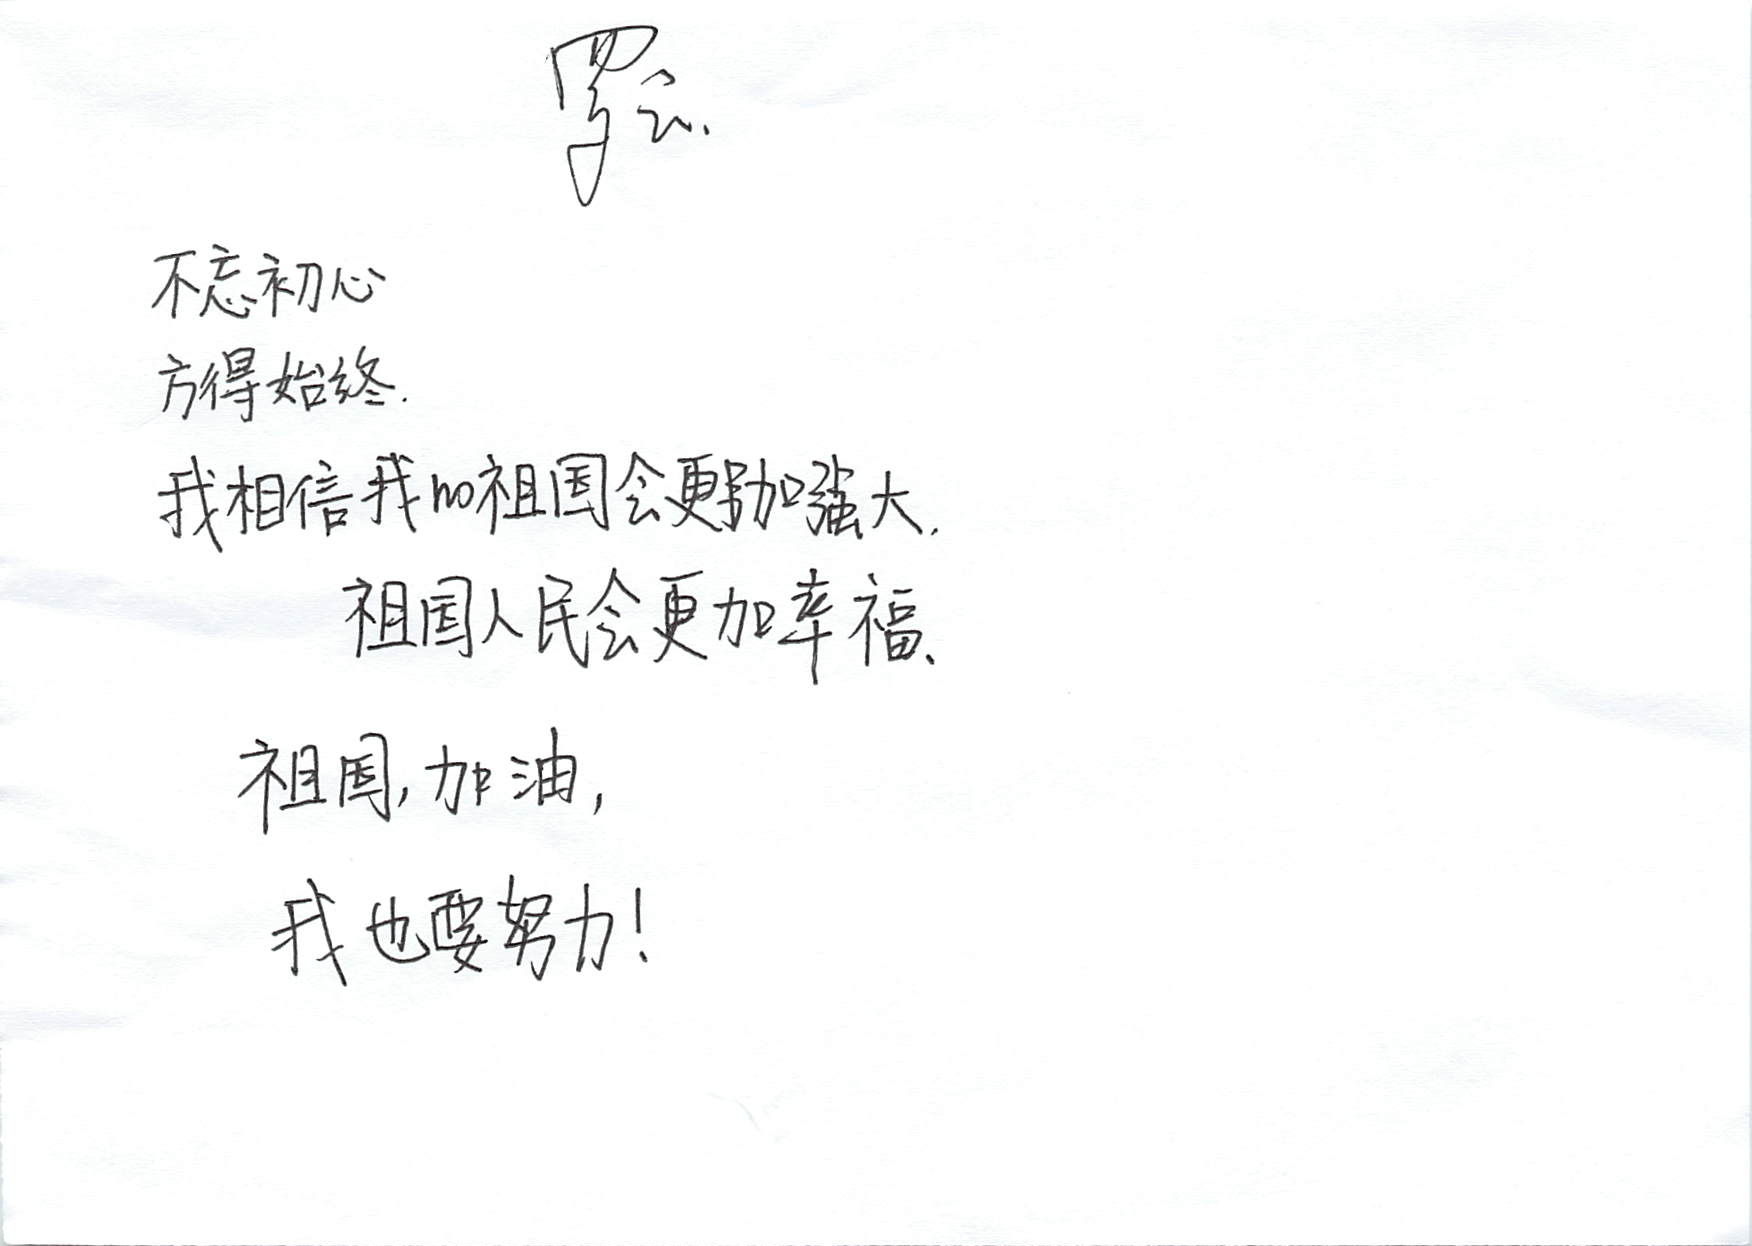 不忘初心
方得始终.
我相信我的祖国会更加强大.
祖国人民会更加幸福、
祖国,加油,
我也要努力!